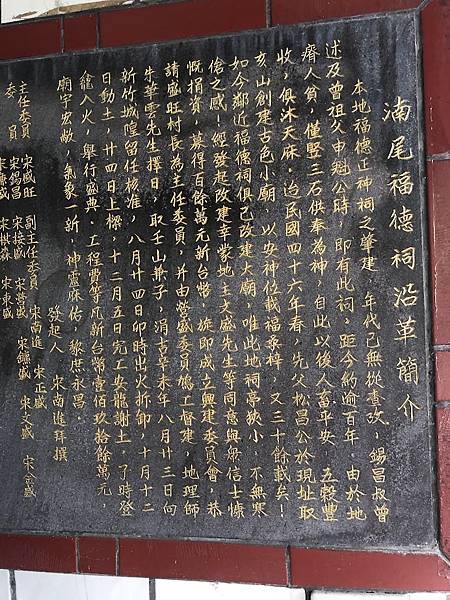 湳尾福德祠沿革簡介
本地福德正神祠之肇建，年代已無從查攷，錫昌叔曾
述及曾祖父申魁公時，即有此祠，距今約逾百年，由於地
瘠人貧，僅豎三石供奉為神，自此以後人畜平安，五穀豐
收，俱沐天庥。迨民國四十六年春，先父松昌公於現址取
亥山創建古色小廟，以安神位載福桑梓，又三十餘載矣！
如今鄰近福德祠俱已改建大廟，唯此地祠亭狹小，不無寒
傖之感！經發起改建幸蒙地主文盛先生等同意與眾信士慷
慨捐資，募得百餘萬元新台幣，旋即成立興建委員會，恭
請盛旺村長為主任委員，并由營盛委員鳩工督建，地理師
朱華雲先生擇日，取壬山兼子，涓吉辛未年八月廿三日向
新竹城隍留任核准，八月廿四日卯時出火拆卸，十月十二
日動土，廿四日上樑，十二月五日完工安龍謝土，子時登
龕入火，舉行盛典。工程費等凡新台幣壹佰玖拾餘萬元，
廟宇宏敞，氣象一新，神靈庥佑，黎庶永昌。
發起人 宋南進拜撰
主任委員 宋盛旺 副主任委員 宋南進 宋正盛
委員 宋錫昌 宋接盛 宋營盛 宋鐮盛 宋文盛 宋金盛
宋祺森 宋東盛